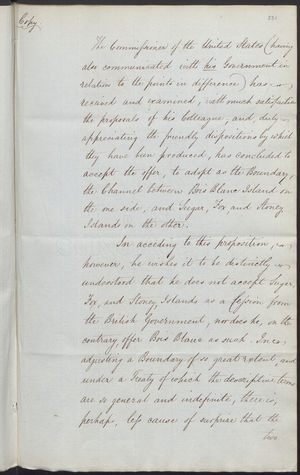 Copy.
The Commissioner of the United States (having
also communicated with his Government in
relation to the points in difference) has
received and examined, with much satisfaction
the proposals of his Colleague, and, duly
appreciating the friendly dispositions by which
they have been produced, has concluded to
accept the offer, to adopt as the Boundary,
the Channel between Bois Blanc Island on
the one side, and Sugar, Fox, and Stoney
Islands on the other.
In acceding to this proposition,
however, he wishes it to be distinctly
understood that he does not accept Sugar,
Fox, and Stoney Islands as a Cession from
the British Government, nor does he, on the
contrary, offer Bois Blanc as such. In
adjusting a Boundary of so great extent, and
under a Treaty of which the descriptive terms
are so general and indefinite, there is,
perhaps, less cause of surprise that the
two